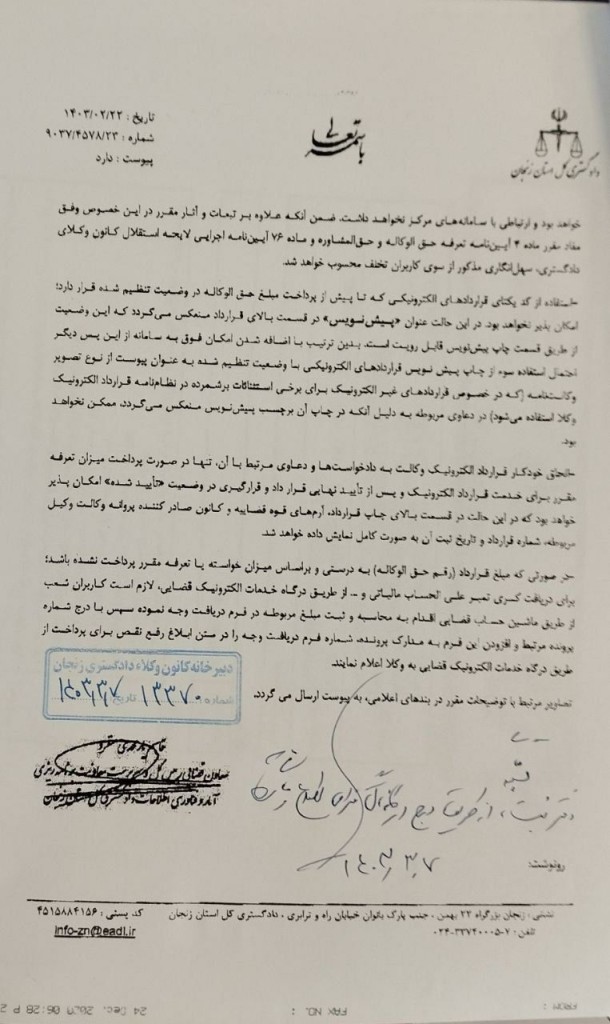 باسمه تعالی
دادگستری کل استان زنجان
تاریخ : ۱۴۰۳/۰۲/۲۳
شماره : ۹۰۳۷/۴۵۷۸/۲۳
پیوست : دارد
خواهد بود و ارتباطی با سامانه‌های مرکز نخواهد داشت. ضمن آنکه علاوه بر تبعات و آثار مقرر در این خصوص وفق
مفاد مقرر ماده ۴ آیین‌نامه تعرفه حق الوکاله و حق‌المشاوره و ماده ۷۶ آیین‌نامه اجرایی لایحه استقلال کانون وکلای
دادگستری، سهل‌انگاری مذکور از سوی کاربران تخلف محسوب خواهد شد.
-استفاده از کد یکتای قراردادهای الکترونیکی که تا پیش از پرداخت مبلغ حق الوکاله در وضعیت تنظیم شده قرار دارد؛
امکان پذیر نخواهد بود. در این حالت عنوان «پیش‌نویس» در قسمت بالای قرارداد منعکس می‌گردد که این وضعیت
از طریق قسمت چاپ پیش‌نویس قابل رویت است. بدین ترتیب با اضافه شدن امکان فوق به سامانه از این پس دیگر
احتمال استفاده سوء از چاپ پیش نویس قراردادهای الکترونیکی با وضعیت تنظیم شده به عنوان پیوست از نوع تصویر
وکالتنامه (که در خصوص قراردادهای غیر الکترونیک برای برخی استثنائات برشمرده در نظام‌نامه قرارداد الکترونیک
وکلا استفاده می‌شود) در دعاوی مربوطه به دلیل آنکه در چاپ آن برچسب پیش‌نویس منعکس می‌گردد، ممکن نخواهد
بود.
-الحاق خودکار قرارداد الکترونیک وکالت به دادخواست‌ها و دعاوی مرتبط با آن، تنها در صورت پرداخت میزان تعرفه
مقرر برای خدمت قرارداد الکترونیک و پس از تأیید نهایی قرار داد و قرارگیری در وضعیت «تأیید شده» امکان پذیر
خواهد بود که در این حالت در قسمت بالای چاپ قرارداد، آرم‌های قوه قضاییه و کانون صادر کننده پروانه وکالت وکیل
مربوطه، شماره قرارداد و تاریخ ثبت آن به صورت کامل نمایش داده خواهد شد.
-در صورتی که مبلغ قرارداد (رقم حق الوکاله) به درستی و براساس میزان خواسته یا تعرفه مقرر پرداخت نشده باشد؛
برای دریافت کسری تمبر علی الحساب مالیاتی و ... از طریق درگاه خدمات الکترونیک قضایی، لازم است کاربران شعب
از طریق ماشین حساب قضایی اقدام به محاسبه و ثبت مبلغ مربوطه در فرم دریافت وجه نموده سپس با درج شماره
پرونده مرتبط و افزودن این فرم به مدارک پرونده، شماره فرم دریافت وجه را در متن ابلاغ رفع نقص برای پرداخت از
طریق درگاه خدمات الکترونیک قضایی به وکلا اعلام نمایند.
تصاویر مرتبط با توضیحات مقرر در بندهای اعلامی، به پیوست ارسال می گردد.
دبیرخانه کانون وکلاء دادگستری زنجان
شماره ۱۳۳۷۰ تاریخ ۱۴۰۳,۳,۷
معاون قضائی رئیس کل و سرپرست معاونت برنامه ریزی
آمار و فناوری اطلاعات دادگستری کل استان زنجان
۱۴۰۳,۳,۷
رونوشت:
نشانی : زنجان بزرگراه ۲۲ بهمن ، جنب پارک بانوان خیابان راه و ترابری ، دادگستری کل استان زنجان
کد پستی : ۴۵۱۵۸۸۴۱۵۶
تلفن : ۷-۳۳۷۴۰۰۰۵-۰۲۴
info-zn@eadl.ir
FROM :
FAX NO. :
24 Dec. 2001 06:28 P 2